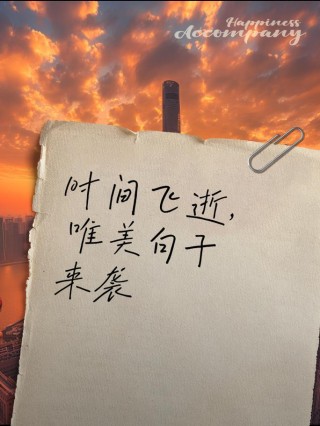 Happiness
Accompany
时间飞逝，
唯美句子
来袭